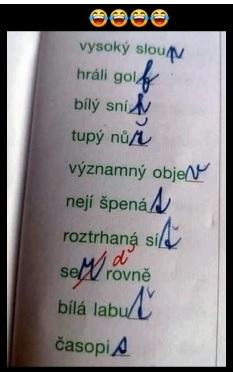 vysoký sloup
hráli golf
bílý sníh
tupý nůž
významný objev
nejí špenát
roztrhaná síť
seď rovně
bílá labuť
časopis